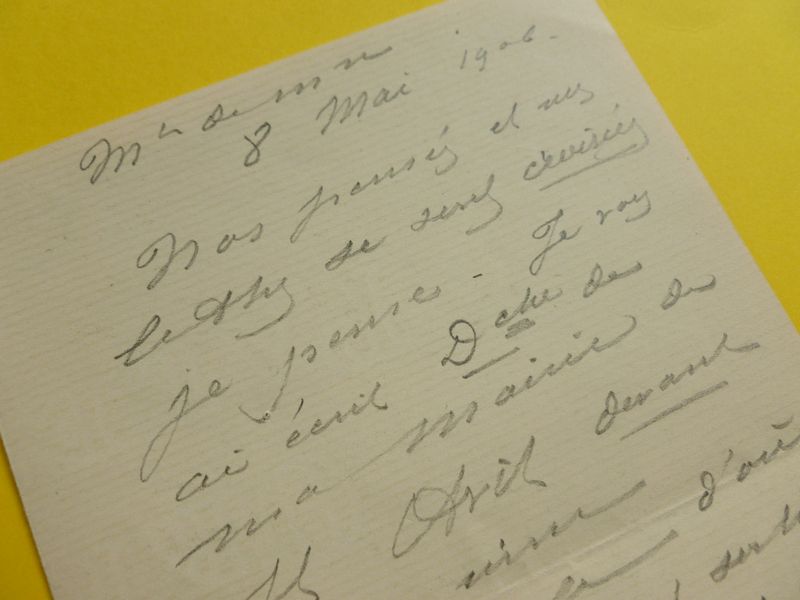 8 Mai 1906.
Nos pensées et nos
lettres se sont croisées
je pense. Je vous
ai écrit Dche de
ma Mairie de
Avril devant
d'où